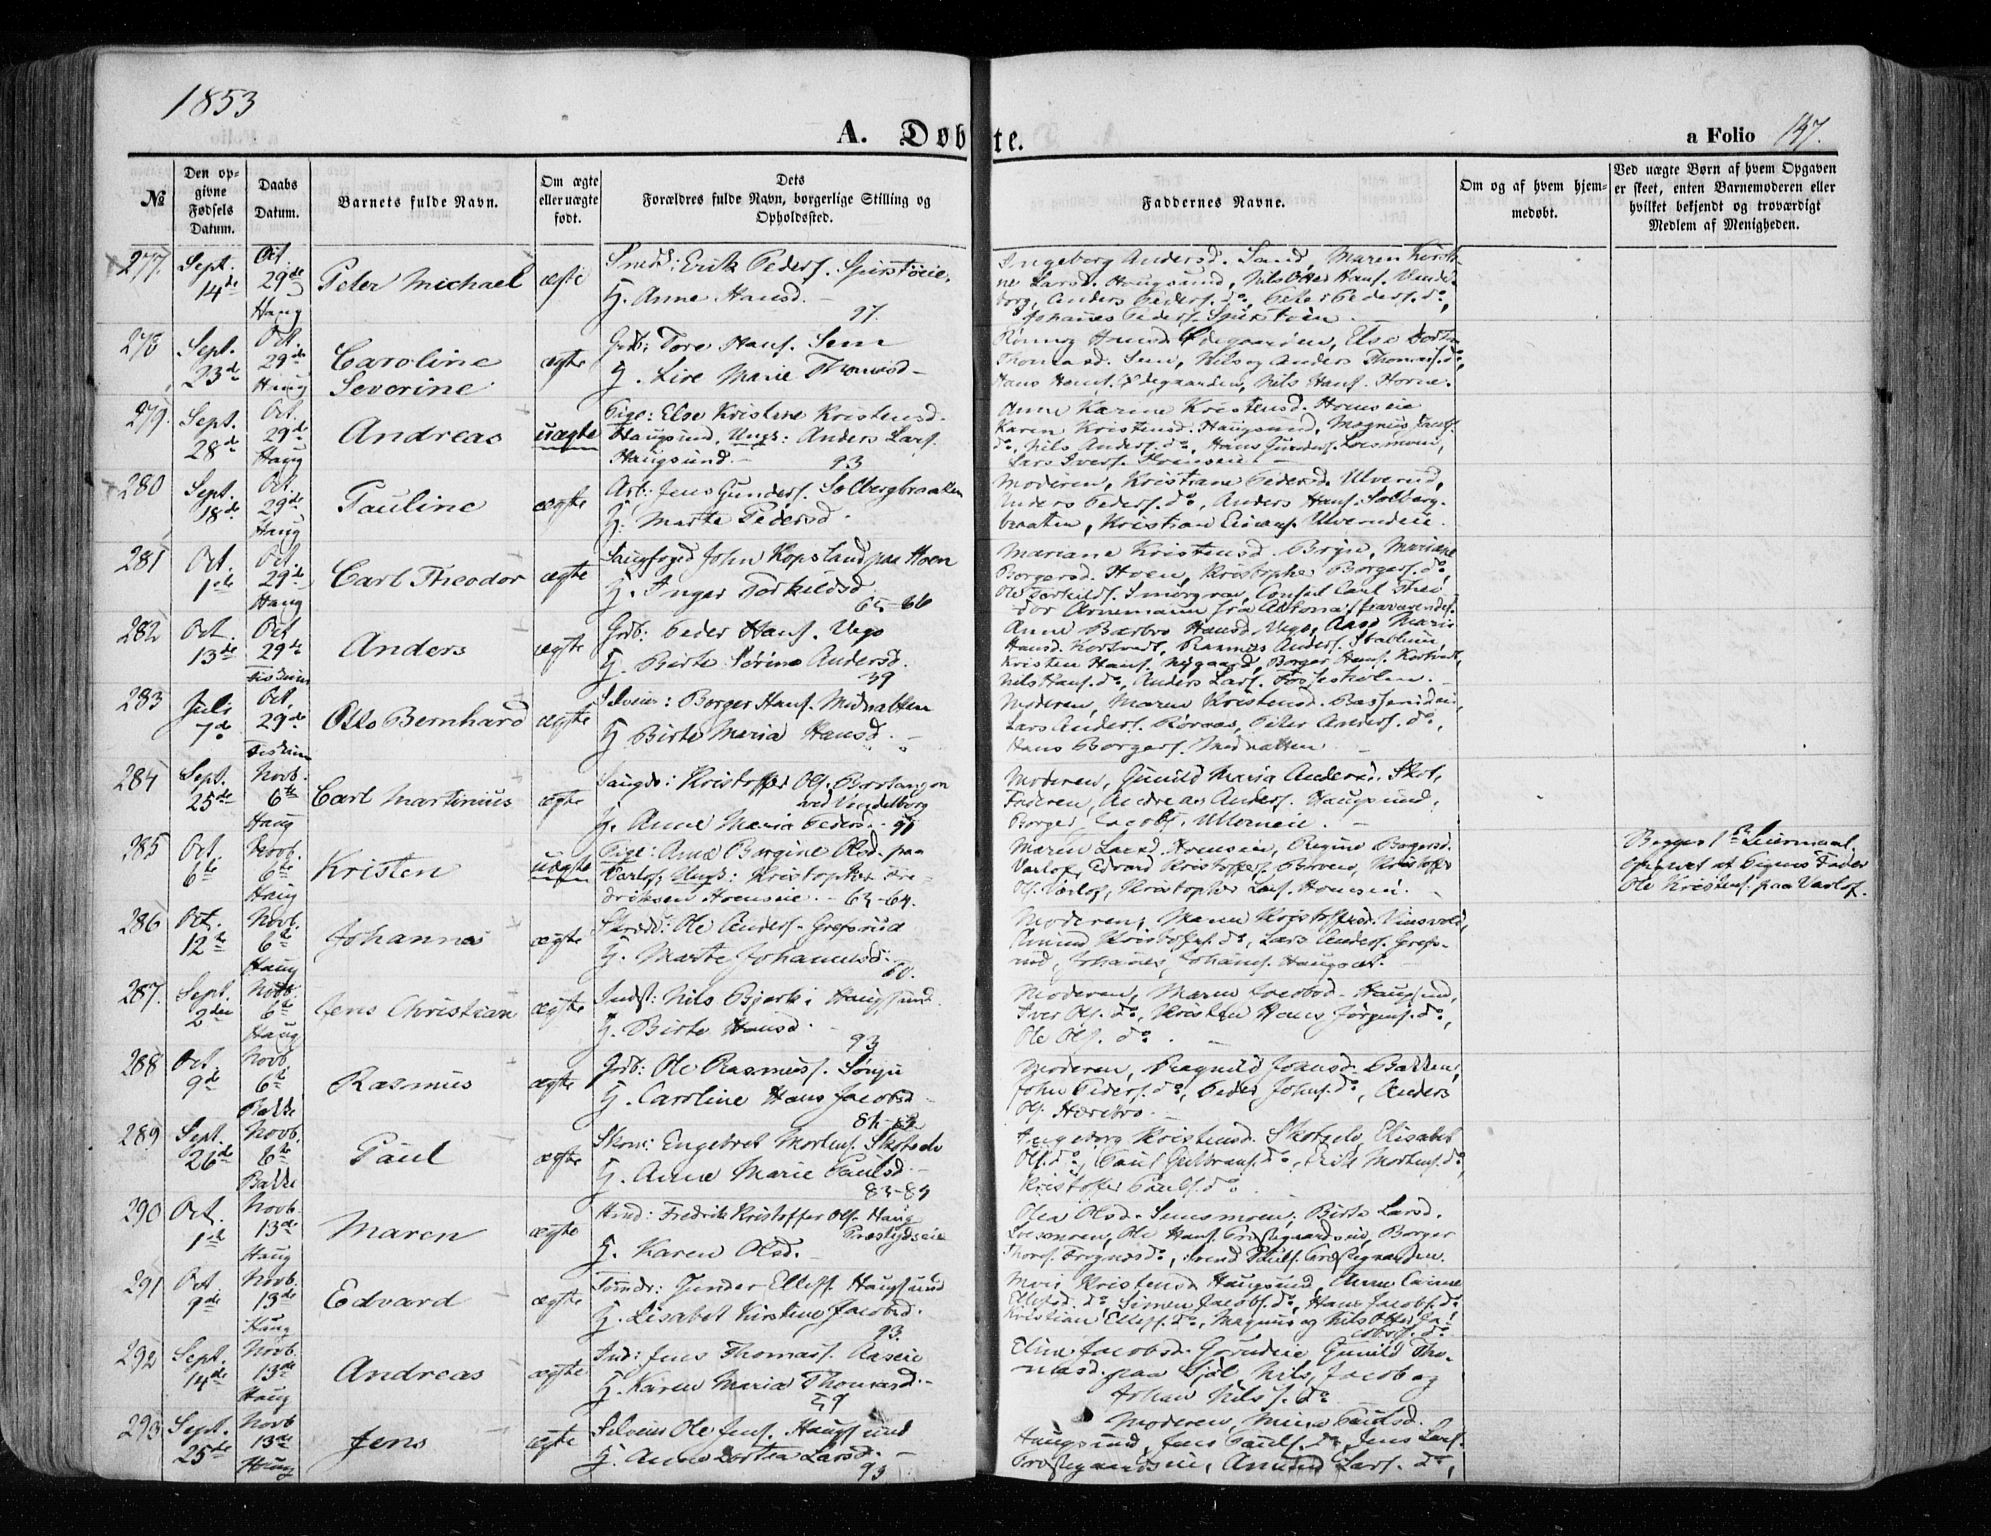 1853
A. Døbte.
a Folio 147.
№
Den op-
givne
Fødsels
Datum.
Daabs
Datum.
Barnets fulde Navn.
Om ægte
eller uægte
født.
Dets
Forældres fulde Navn, borgerlige Stilling og
Opholdssted.
Faddernes Navne.
Om og af hvem hjem-
medøbt.
Ved uægte Børn af hvem Opgaven
er skeet, enten Barnemoderen eller
hvilket bekjendt og troværdigt
Medlem af Menigheden.
277. Sept. 14de Oct. 29de Haug Peter Michael ægte
Smed: Erik Peders.
H. Anne Hansd. 97.
Ingeborg Andersd. Sand, Maren Kirsti-
ne Larsd. Haugsund, Nils Otter Hans.
Anders Peders. do, Peter Peders. do,
Johannes Peders.
278 Sept. 23de Oct. 29de Haug Caroline Severine ægte
Grdb: Tore Hans. Sem
H. Live Marie Thomasd.
Thomasd. Sem, Nils og Anders Thomass. do,
Hans Hans. Ødegaarden, Nils Hans. Horne.
279. Sept. 28de Oct. 29de Haug Andreas uægte
Pige: Else Kristine Kristensd.
Haugsund, Ungk: Anders Lars.
Haugsund. 93
Anne Karine Kristensd. Hoenseie
Karen Kristensd. Haugsund, Magnus
do, Nils Anders. do, Hans
Lars Ivers. Hoenseie
280 Sept. 18de Oct. 29de Haug Pauline ægte
Arb: Jens Gunders. Solbergbraaten
H. Marthe Pedersd.
Moderen, Kristiane Pedersd. Ulverud,
Anders Peders. do, Anders Hans. Solberg-
braaten, Kristian
281 Oct. 1ste Oct. 29de Haug Carl Theodor ægte
Saugfoged John Kopsland paa Hoen
H. Inger Torkildsd. 65-66
Mariane Kristensd. Bryn, Mariane
Borgersd. Hoen, Kristopher Borgers. do,
Ole Torkilds. Smørgrav, Consul Carl Theo
dor Arnemann fra Altona, fraværendes.
282 Oct. 13de Oct. 29de Fiskum Anders ægte
Grdb: Peder Hans. Vego
H. Birte Sørine Andersd. 39
Anne Barbro Hansd. Vego, Aase Marie
Hansd. Kortvedt, Rasmus Anders. Stablun,
Kristen Hans. Nygaard, Borger Hans. Kortvedt,
Nils Hans. do, Anders Lars. Fossesholm.
283 Juli 7de Oct. 29de Fiskum Otto Bernhard ægte
Selveier: Borger Hans. Midnatten
H. Birte Maria Hansd.
Moderen, Maren Kristensd.
Lars Anders. Røraas, Peter Anders. do,
Hans Borgers. Midnatten
284 Sept. 25de Novb. 6te Haug Carl Martinius ægte
Saugd: Kristoffer Ols.
ved Vendelborg
H. Anne Maria Pedersd. 91
Moderen, Gunild Maria Andersd. Skot,
Faderen, Andreas Anders. Haugsund,
Borger Jacobs.
285 Oct. 6te Novb. 6te Haug Kristen uægte
Pige: Anne Borgine Olsd. paa
Varlof, Ungk: Kristopher Fre-
driksen Hoenseie. 63-64.
Maren Larsd. Hoenseie, Regine Borgersd.
Varlof, Edvard Kristoffers. Kristoffer
Ols. Varlof, Kristopher Lars. Hoenseie.
Begges 1ste Leiermaal.
Opgivet af Pigens Fader
Ole Kristens. paa Varlof.
286 Oct. 12te Novb. 6te Haug Johannes ægte
Skrædd: Ole Anders. Grefsrud
H. Marte Johannesd. 60.
Moderen, Maren Kristoffersd.
Amund Kristoffers. do, Lars Anders. Grefs-
rud, Johannes Johannes.
287. Sept. 2den Novb. 6te Haug Jens Christian ægte
Indst: Nils Bjerke i Haugsund.
H. Birte Hansd. 93
Moderen, Maren Jacobsd. Haugsund,
Iver Ols. do, Kristen Hans Jørgens. do,
Ole Ols. do
288 Oct. 9de Novb. 6te Bakke Rasmus ægte
Grdb: Ole Rasmus. Sønju
H. Caroline Hans Jacobsd.
Moderen, Ragnild Johnsd. Bakken,
John Peders. do, Peder Johns. do, Anders
Ols. Horsbro
289 Sept. 26de Novb. 6te Bakke Paul ægte
Skom: Engebret Mortens. Skotselv
H. Anne Marie Paulsd. 83-84
Ingeborg Kristensd. Skotselv, Elisabet
Ols. do, Paul Gulbrans. do, Erik Mortens. do,
Kristoffer Pauls. do
290 Oct. 1ste Novb. 13de Haug Maren ægte
Hmd: Fredrik Kristoffer Ols. Haug
Præstejdseie
H. Karen Olsd.
Olea Olsd. Semsmoen, Birte Larsd.
Loesmoen, Ole Hans. Præstegaardseie, Borger
Thores. Frognes, Svend Pauls. Præstegaarden.
291 Oct 9de Novb. 13de Haug Edvard ægte
Tømdr: Gunder Ellefs. Haugsund
H. Lisabet Kirstine Jacobsd. 93.
Mari Kristensd. Haugsund, Anne Carine
Ellefsd. do, Simen Jacobs. do, Hans Jacobs. do
Kristian Ellefs. do, Magnus og Nils Otter Ja-
cobs. do
292 Sept. 14de Novb. 13de Haug Andreas ægte
Ind: Jens Thomas. Aaseie
H. Karen Maria Thomasd. 59
Eline Jacobsd. Gunild Tho-
masd. paa Sjøl, Nils, Jacob og
Johan Nils. do
293 Sept. 25de Novb 13de Haug Jens ægte
Selveier Ole Jens. Haugsund
H. Anne Dortea Larsd. 93
Moderen, Mina Paulsd.
Haugsund, Jens Pauls. do, Jens Lars.
Præstegaardseie, Amund Lars. do,